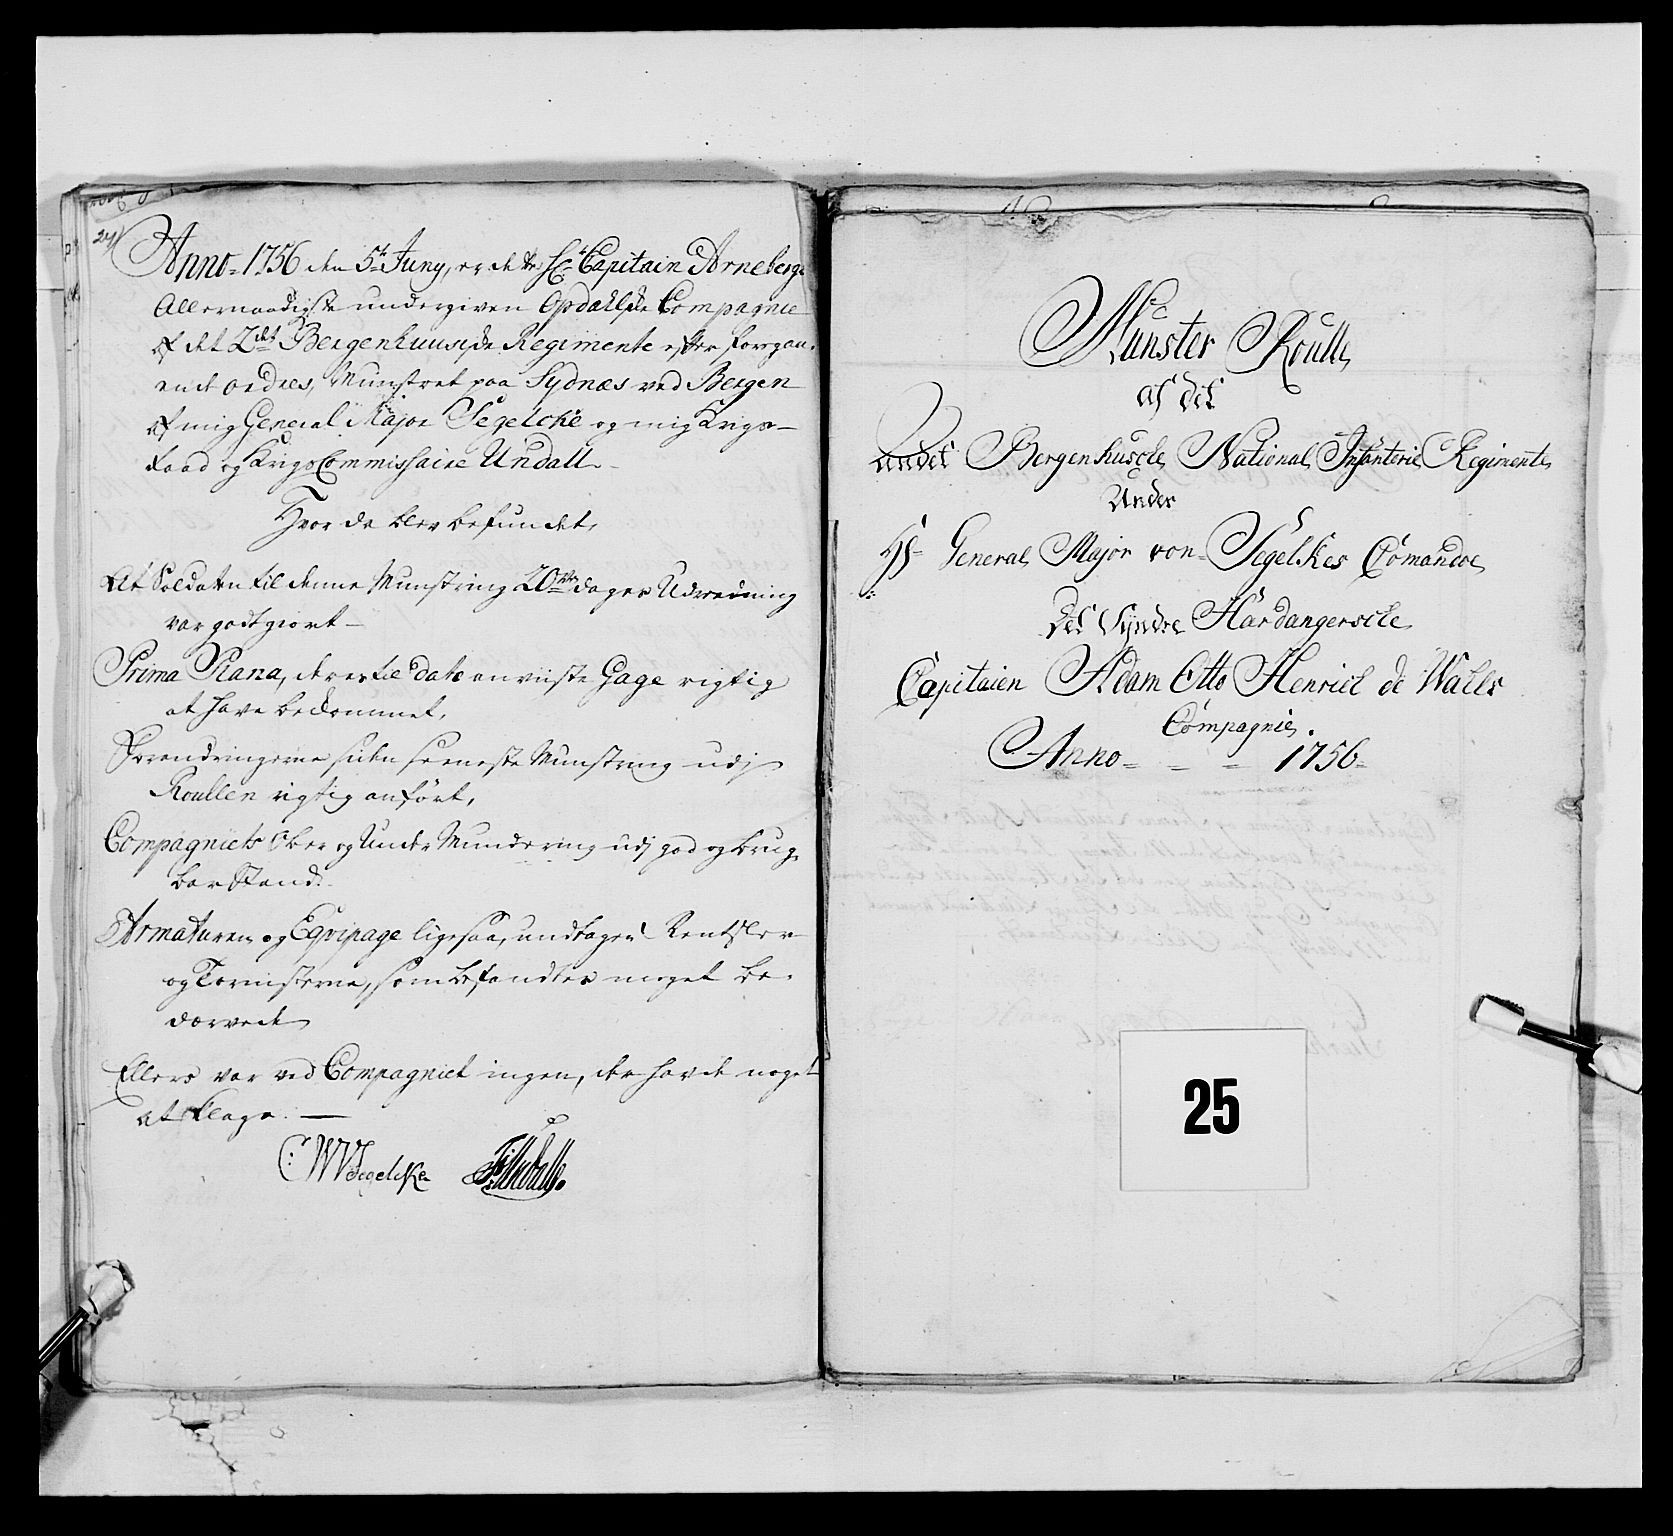 24
Anno 1756 den 5t Juny, er dette Hr Capitain Arneberg
Allernaadigst undergiven Opdalske Compagnie
af det 2det Bergenhuusiske Regimente efter foregaa-
ende ordres, Munstret paa Sydnæs ved Bergen
af mig General Major Segelcke og mig Krigs-
Raad og Krigs Commissaire Undall
Hvor da blev befundet,
At Soldaten til denne Munstring 20ve dages Udreedning
var godtgiort
Prima Plana, deres til dato anviiste Gage rigtig
at have bekommet,
Forandringerne siden seeneste Munstring udj
Roullen rigtig anført,
Compagniets Over og Under Mundering udj god og brug-
bar Stand.
Armaturen og Eqvipage ligesaa, undtagen
og Tornisterne, som befandtes noget be-
dærvede
Ellers var ved Compagniet ingen, der havde noget
at klage.
C: W Segelcke Undall
Munster Roulle
af det
andet Bergenhusde National Infanterie Regimente
Under
Hr General Major von Segelkes Comandoe
Det Syndre Hardangerscke
Capitaien Adam Otto Henrich de Walls
Compagnie.
Anno 1756
25